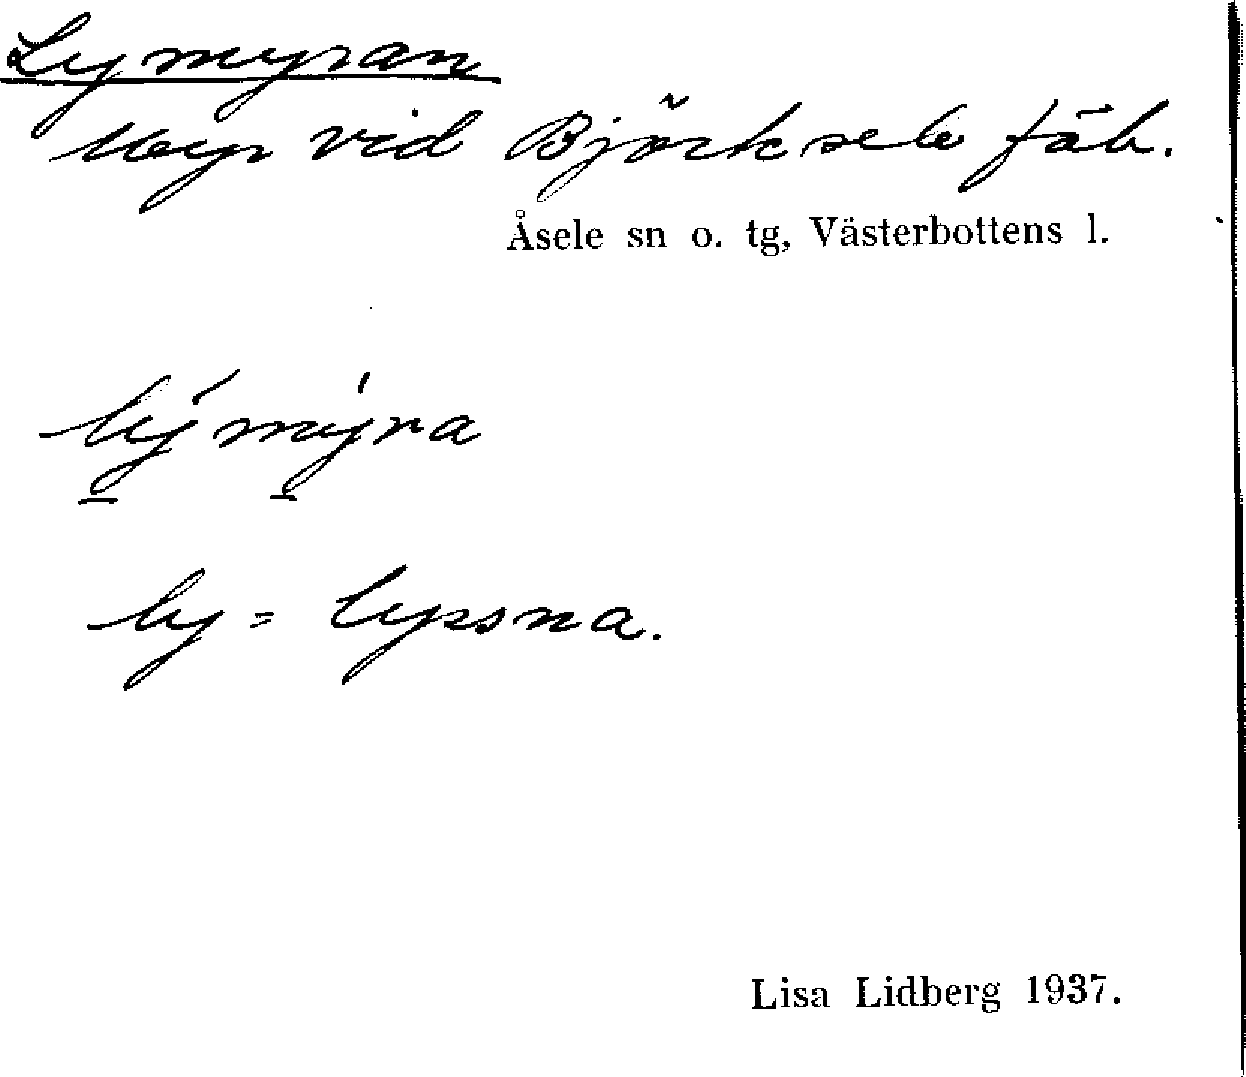 Lymyran
Myr vid Björksele fäb.
Åsele sn o. tg, Västerbottens l.
lý mýra
ly = lyssna.
Lisa Lidberg 1937.